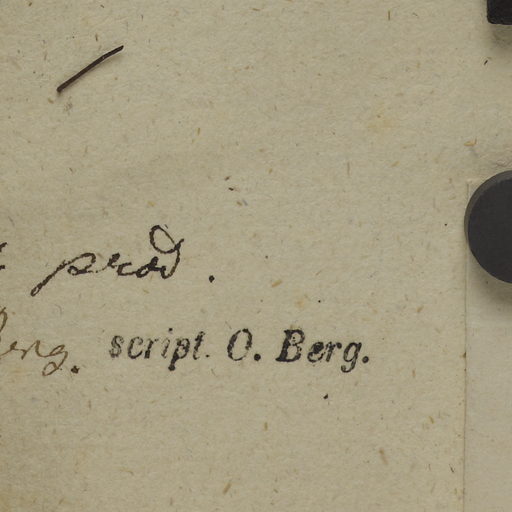 prod.
erg. script. O. Berg.